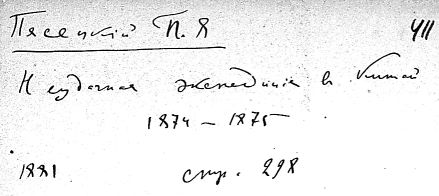 Пясецкій П. Я
411
Неудачная экспедиція в Китай
1874 – 1875
1881 стр. 298